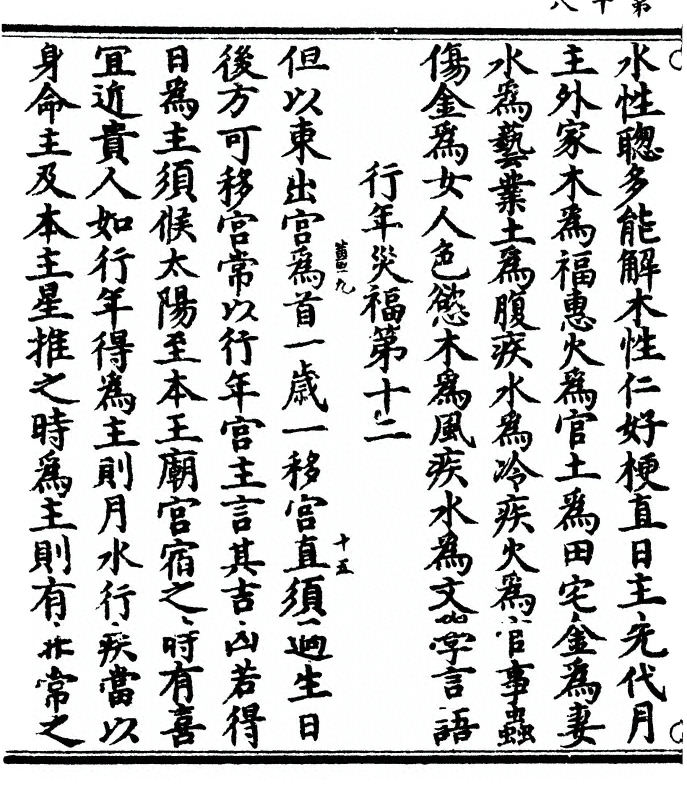 第十八
水性聦多能解木性仁好梗直日主先代月
主外家木為福惠火為官土為田宅金為妻
水為藝業土為腹疾水為冷疾火為官事蟲
傷金為女人色慾木為風疾水為文學言語
行年災福第十二
但以東出宮為首一歲一移宮直須過生日
十五
後方可移宮常以行年宮主言其吉凶若得
日為主須候太陽至本王廟宮宿之時有喜
冝近貴人如行年得為主則月水行疾當以
身命主及本主星推之時為主則有非常之